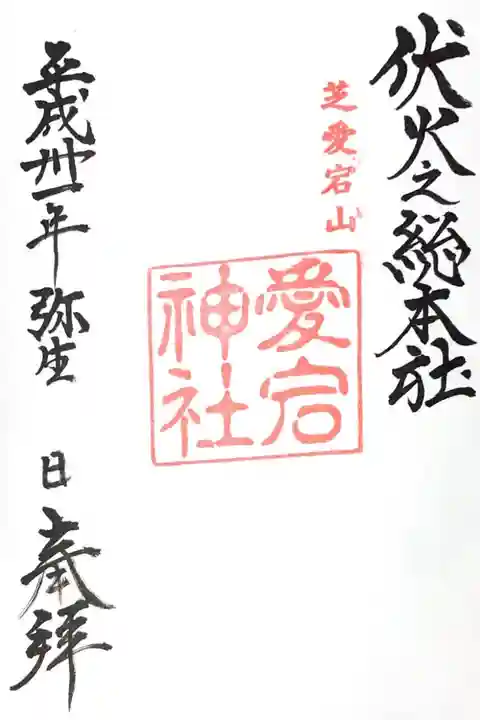 伏火之総本社
芝愛宕山
愛宕
神社
平成卅一年弥生 日奉拝